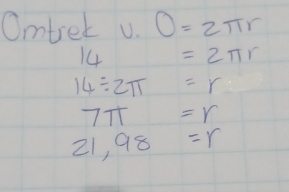 Omtrek v. O = 2πr
14 = 2πr
14 ÷ 2π = r
7π = r
21,98 = r